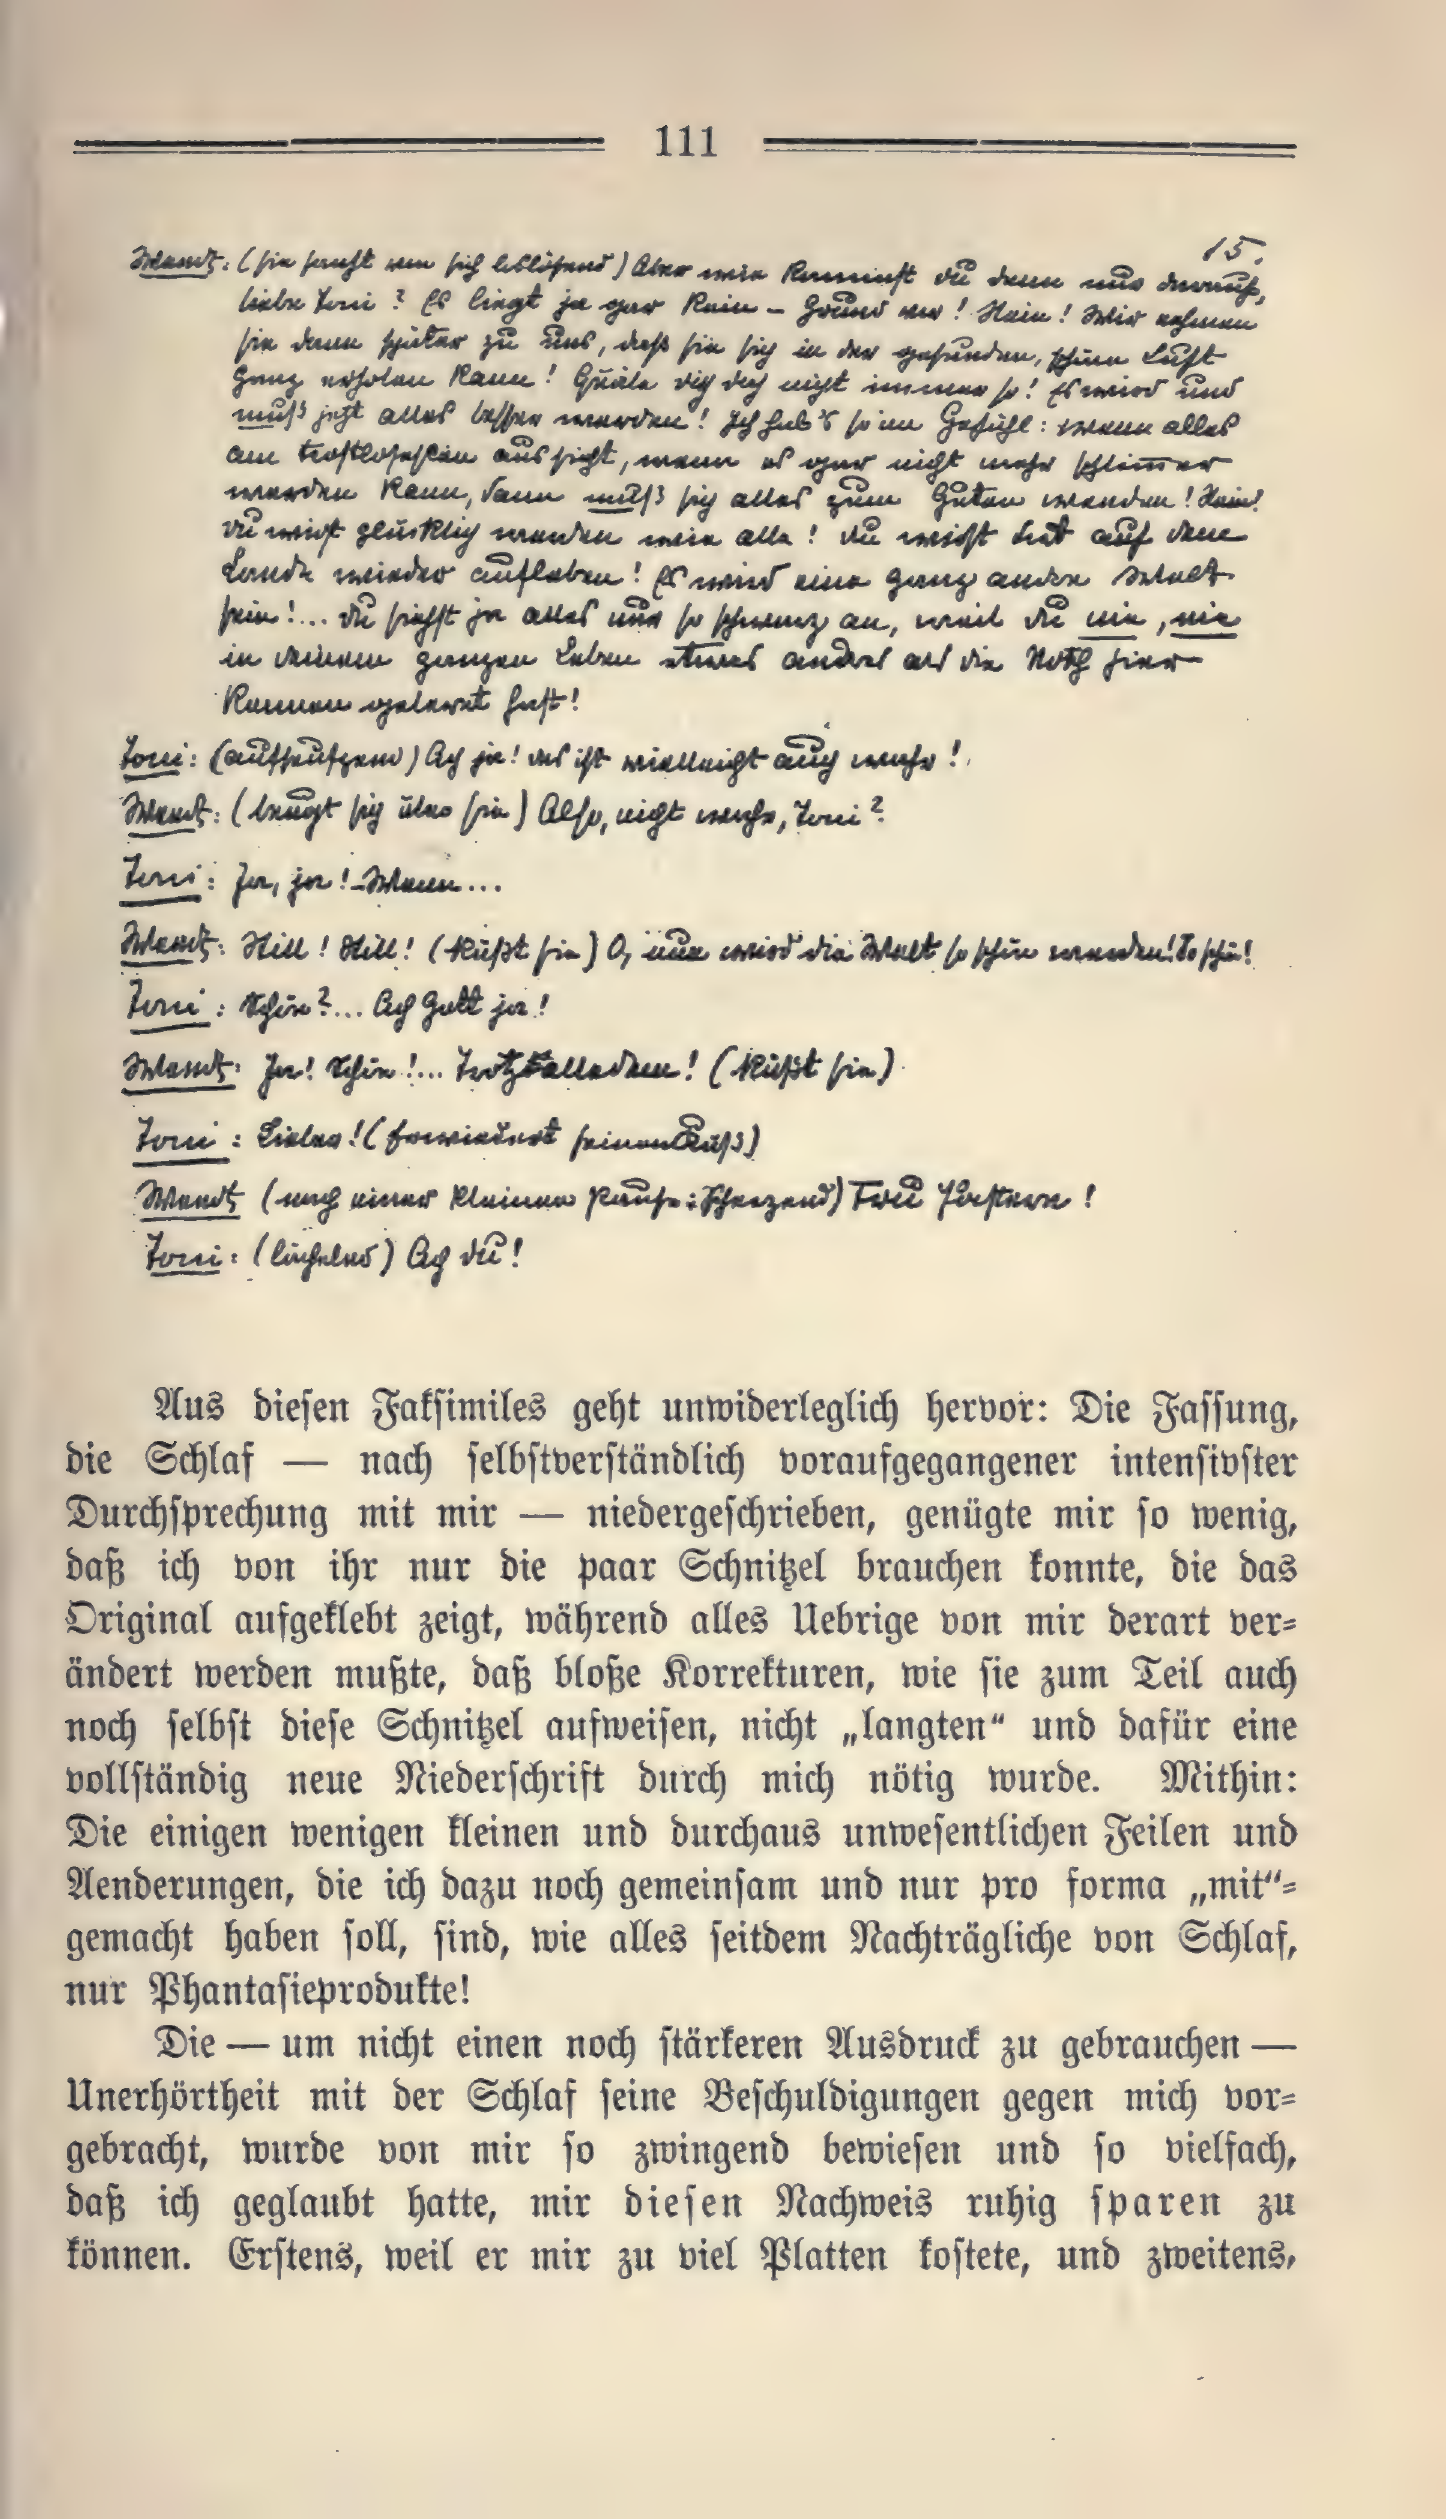 111
15.
Wendt: (sie sanft von sich loslösend) Aber wie kommst du denn nur darauf,
liebe Toni? Es liegt ja gar kein – Grund vor! Nein! Wir nehmen
sie dann später zu uns, daß sie sich in der gesunden, schönen Luft
ganz erholen kann! Quäle dich doch nicht immer so! Es wird und
muß jetzt alles besser werden! Ich hab's so im Gefühl: wenn alles
am trostlosesten aussieht, wenn es gar nicht mehr schlimmer
werden kann, dann muß sich alles zum Guten wenden! Nein!
Du wirst glücklich werden wie alle! Du wirst dort auf dem
Lande wieder aufleben! Es wird eine ganz andre Welt
sein!... Du siehst ja alles nur so schwarz an, weil du nie, nie
in deinem ganzen Leben etwas andres als die Noth hier
kennen gelernt hast!
Toni: (aufseufzend) Ach ja! das ist vielleicht auch wahr!
Wendt: (beugt sich über sie) Also, nicht wahr, Toni?
Toni: Ja, ja! – Wenn...
Wendt: Still! Still! (küßt sie) O, nun wird die Welt so schön werden! So schön!
Toni: Schön?... Ach Gott ja!
Wendt: Ja! Schön!... Trotz alledem! (küßt sie)
Toni: Lieber! (Erwiedert seinen Kuß)
Wendt (nach einer kleinen Pause: Scherzend) Frau Pastern!
Toni: (lächelnd) Ach du!
Aus diesen Faksimiles geht unwiderleglich hervor: Die Fassung,
die Schlaf — nach selbstverständlich voraufgegangener intensivster
Durchsprechung mit mir — niedergeschrieben, genügte mir so wenig,
daß ich von ihr nur die paar Schnitzel brauchen konnte, die das
Original aufgeklebt zeigt, während alles Uebrige von mir derart ver-
ändert werden mußte, daß bloße Korrekturen, wie sie zum Teil auch
noch selbst diese Schnitzel aufweisen, nicht „langten“ und dafür eine
vollständig neue Niederschrift durch mich nötig wurde. Mithin:
Die einigen wenigen kleinen und durchaus unwesentlichen Feilen und
Aenderungen, die ich dazu noch gemeinsam und nur pro forma „mit“-
gemacht haben soll, sind, wie alles seitdem Nachträgliche von Schlaf,
nur Phantasieprodukte!
Die — um nicht einen noch stärkeren Ausdruck zu gebrauchen —
Unerhörtheit mit der Schlaf seine Beschuldigungen gegen mich vor-
gebracht, wurde von mir so zwingend bewiesen und so vielfach,
daß ich geglaubt hatte, mir diesen Nachweis ruhig sparen zu
können. Erstens, weil er mir zu viel Platten kostete, und zweitens,